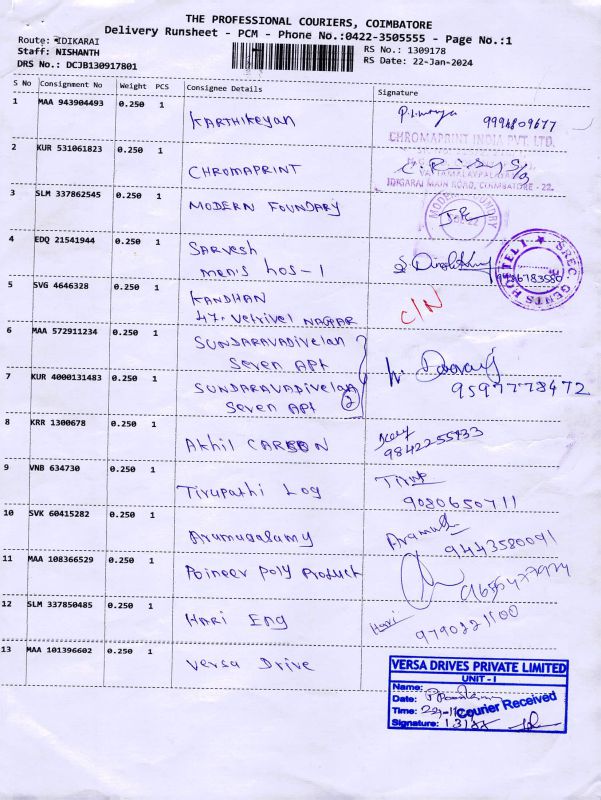 THE PROFESSIONAL COURIERS, COIMBATORE
Delivery Runsheet - PCM - Phone No.:0422-3505555 - Page No.:1
Route: IDIKARAI
Staff: NISHANTH
DRS No.: DCJB130917801
RS No.: 1309178
RS Date: 22-Jan-2024
S No Consignment No Weight PCS Consignee Details Signature
1 MAA 943904493 0.250 1 KARTHIKEyAN
CHROMAPRINT INDIA PVT. LTD.
2 KUR 531061823 0.250 1 CHROMAPRINT
IDIGARAI MAIN ROAD, COIMBATORE - 22.
3 SLM 337862545 0.250 1 MODERN FOUNDARY
MODERN FOUNDRY
4 EDQ 21541944 0.250 1 SARVESH
men's hos-1
SREC GENTS HOSTEL 1
5 SVG 4646328 0.250 1 KANDHAN C/N
47. Vetrivel NAGAR
6 MAA 572911234 0.250 1 SUNDARAVADivelan
Seven APt
7 KUR 4000131483 0.250 1 SUNDARAVADivelan 9597778472
Seven APt 2
8 KRR 1300678 0.250 1 AKhil CARBON 9842255933
9 VNB 634730 0.250 1 Tirupathi Log
9080650711
10 SVK 60415282 0.250 1 Arumugalamy
9443580091
11 MAA 108366529 0.250 1 Poineer Poly Product
12 SLM 337850485 0.250 1 HARI Eng Hari 9790221100
13 MAA 101396602 0.250 1 Versa Drive
VERSA DRIVES PRIVATE LIMITED
UNIT - I
Name:
Date:
Time:
Courier Received
Signature: